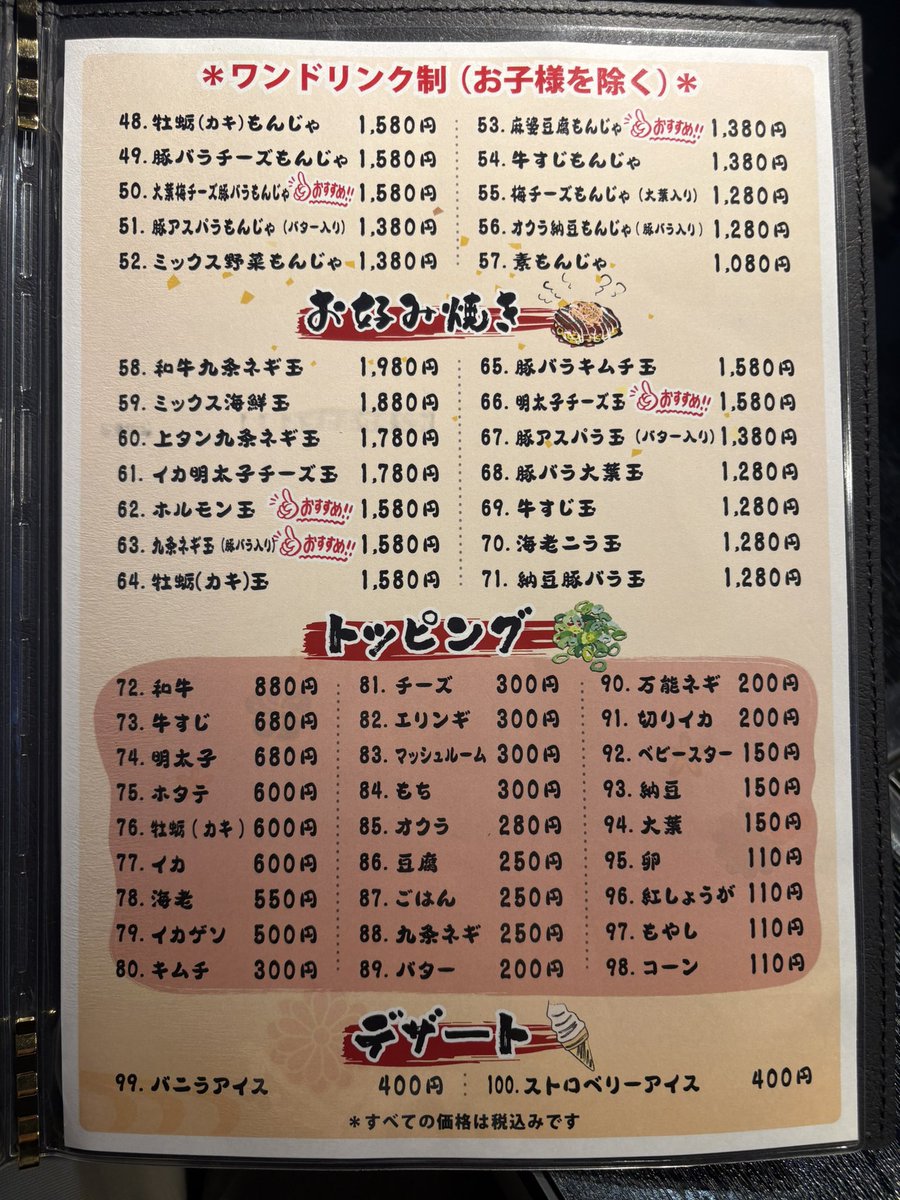 ＊ワンドリンク制（お子様を除く）＊
48. 牡蛎(カキ)もんじゃ 1,580円
49. 豚バラチーズもんじゃ 1,580円
50. 大葉梅チーズ豚バラもんじゃ おすすめ!! 1,580円
51. 豚アスパラもんじゃ（バター入り） 1,380円
52. ミックス野菜もんじゃ 1,380円
53. 麻婆豆腐もんじゃ おすすめ!! 1,380円
54. 牛すじもんじゃ 1,380円
55. 梅チーズもんじゃ（大葉入り） 1,280円
56. オクラ納豆もんじゃ（豚バラ入り） 1,280円
57. 素もんじゃ 1,080円
お好み焼き
58. 和牛九条ネギ玉 1,980円
59. ミックス海鮮玉 1,880円
60. 上タン九条ネギ玉 1,780円
61. イカ明太子チーズ玉 1,780円
62. ホルモン玉 おすすめ!! 1,580円
63. 九条ネギ玉（豚バラ入り） おすすめ!! 1,580円
64. 牡蛎(カキ)玉 1,580円
65. 豚バラキムチ玉 1,580円
66. 明太子チーズ玉 おすすめ!! 1,580円
67. 豚アスパラ玉（バター入り） 1,380円
68. 豚バラ大葉玉 1,280円
69. 牛すじ玉 1,280円
70. 海老ニラ玉 1,280円
71. 納豆豚バラ玉 1,280円
トッピング
72. 和牛 880円
73. 牛すじ 680円
74. 明太子 680円
75. ホタテ 600円
76. 牡蛎(カキ) 600円
77. イカ 600円
78. 海老 550円
79. イカゲソ 500円
80. キムチ 300円
81. チーズ 300円
82. エリンギ 300円
83. マッシュルーム 300円
84. もち 300円
85. オクラ 280円
86. 豆腐 250円
87. ごはん 250円
88. 九条ネギ 250円
89. バター 200円
90. 万能ネギ 200円
91. 切りイカ 200円
92. ベビースター 150円
93. 納豆 150円
94. 大葉 150円
95. 卵 110円
96. 紅しょうが 110円
97. もやし 110円
98. コーン 110円
デザート
99. バニラアイス 400円
100. ストロベリーアイス 400円
＊すべての価格は税込みです